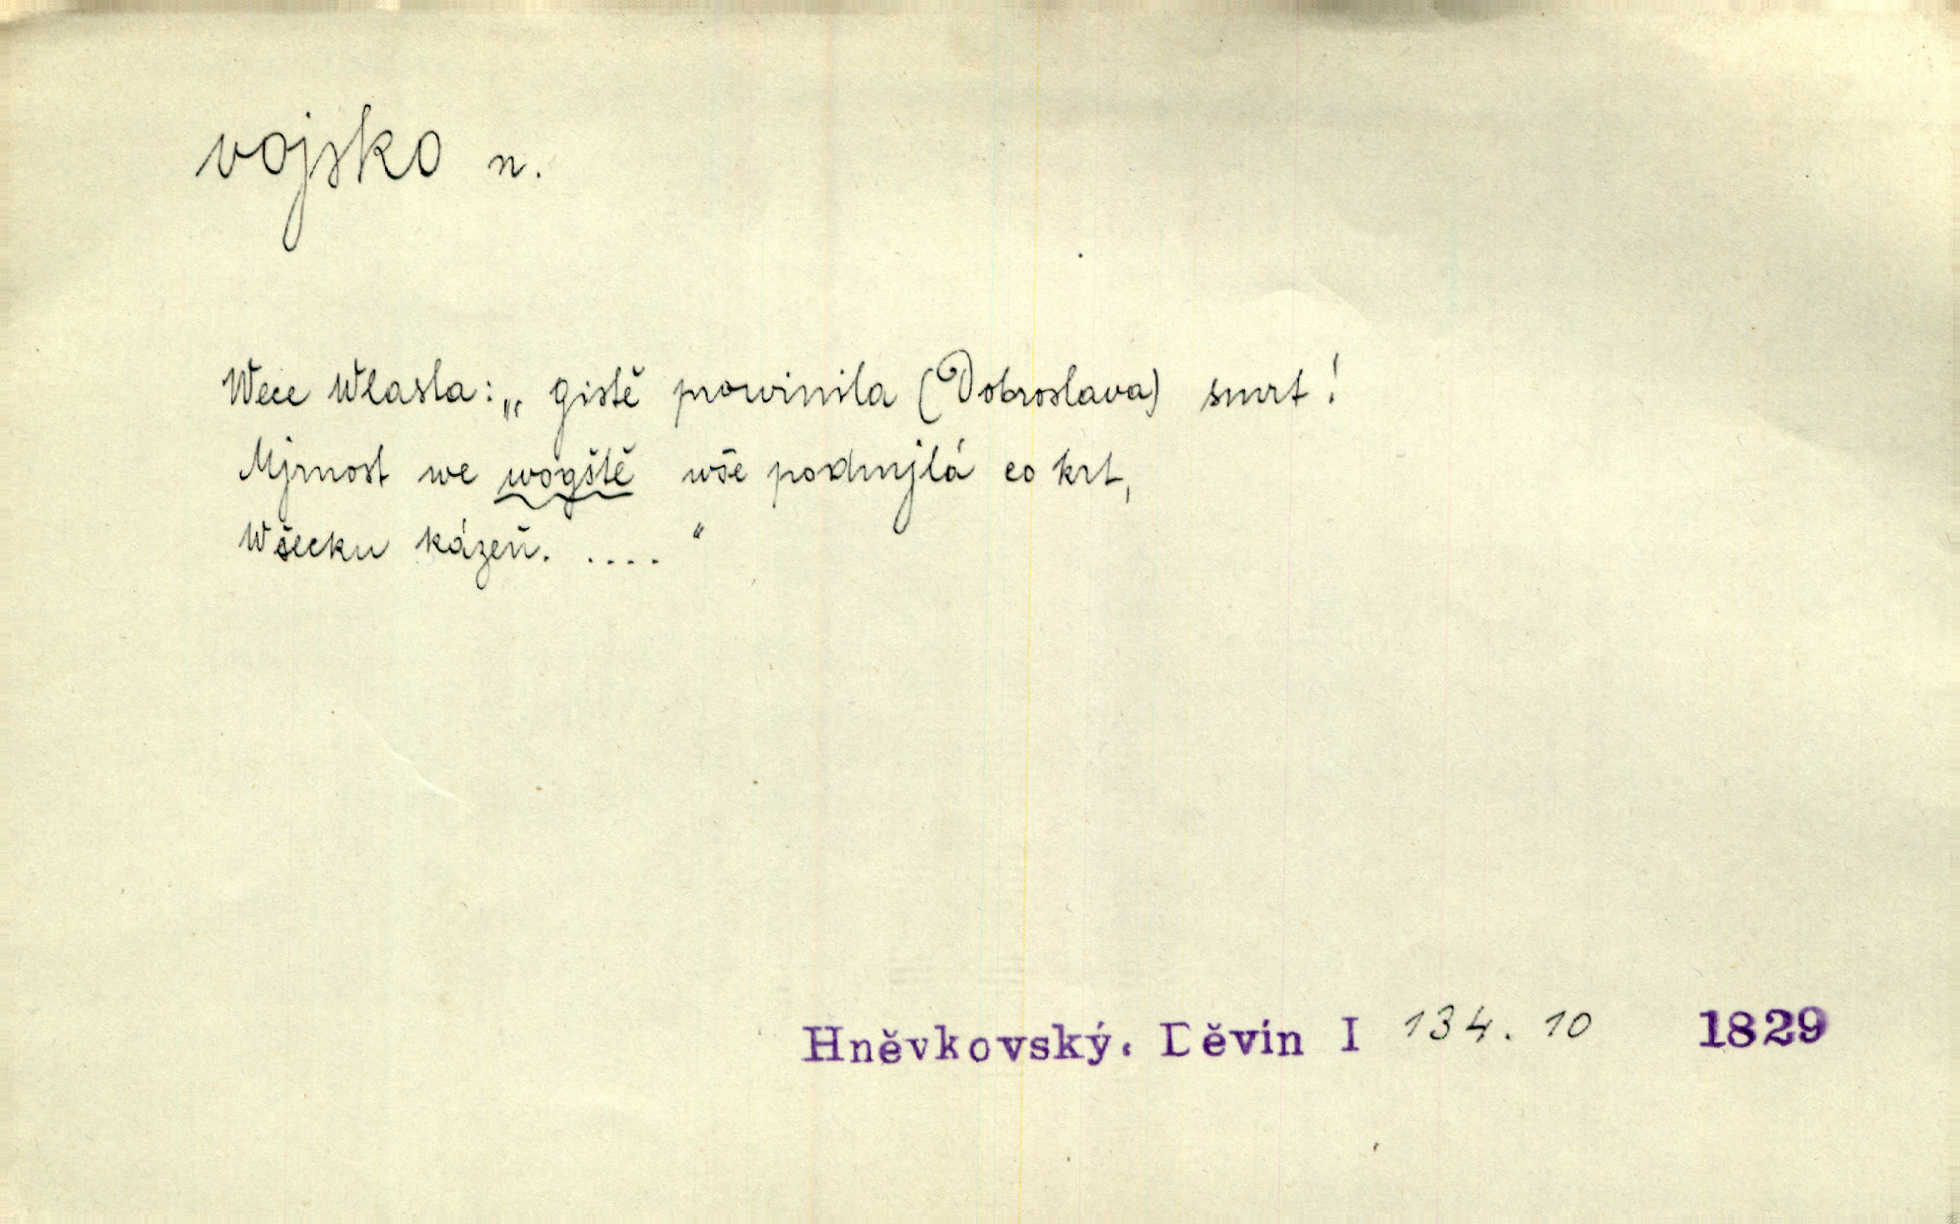 vojsko n.
Wece Wlasta: „ gistě prowinila (Dobroslava) smrt!
Mjrnost we wogště wše podmjlá co krt,
Wšecku kázeň. .... “
Hněvkovský. Děvín I 134. 10 1829